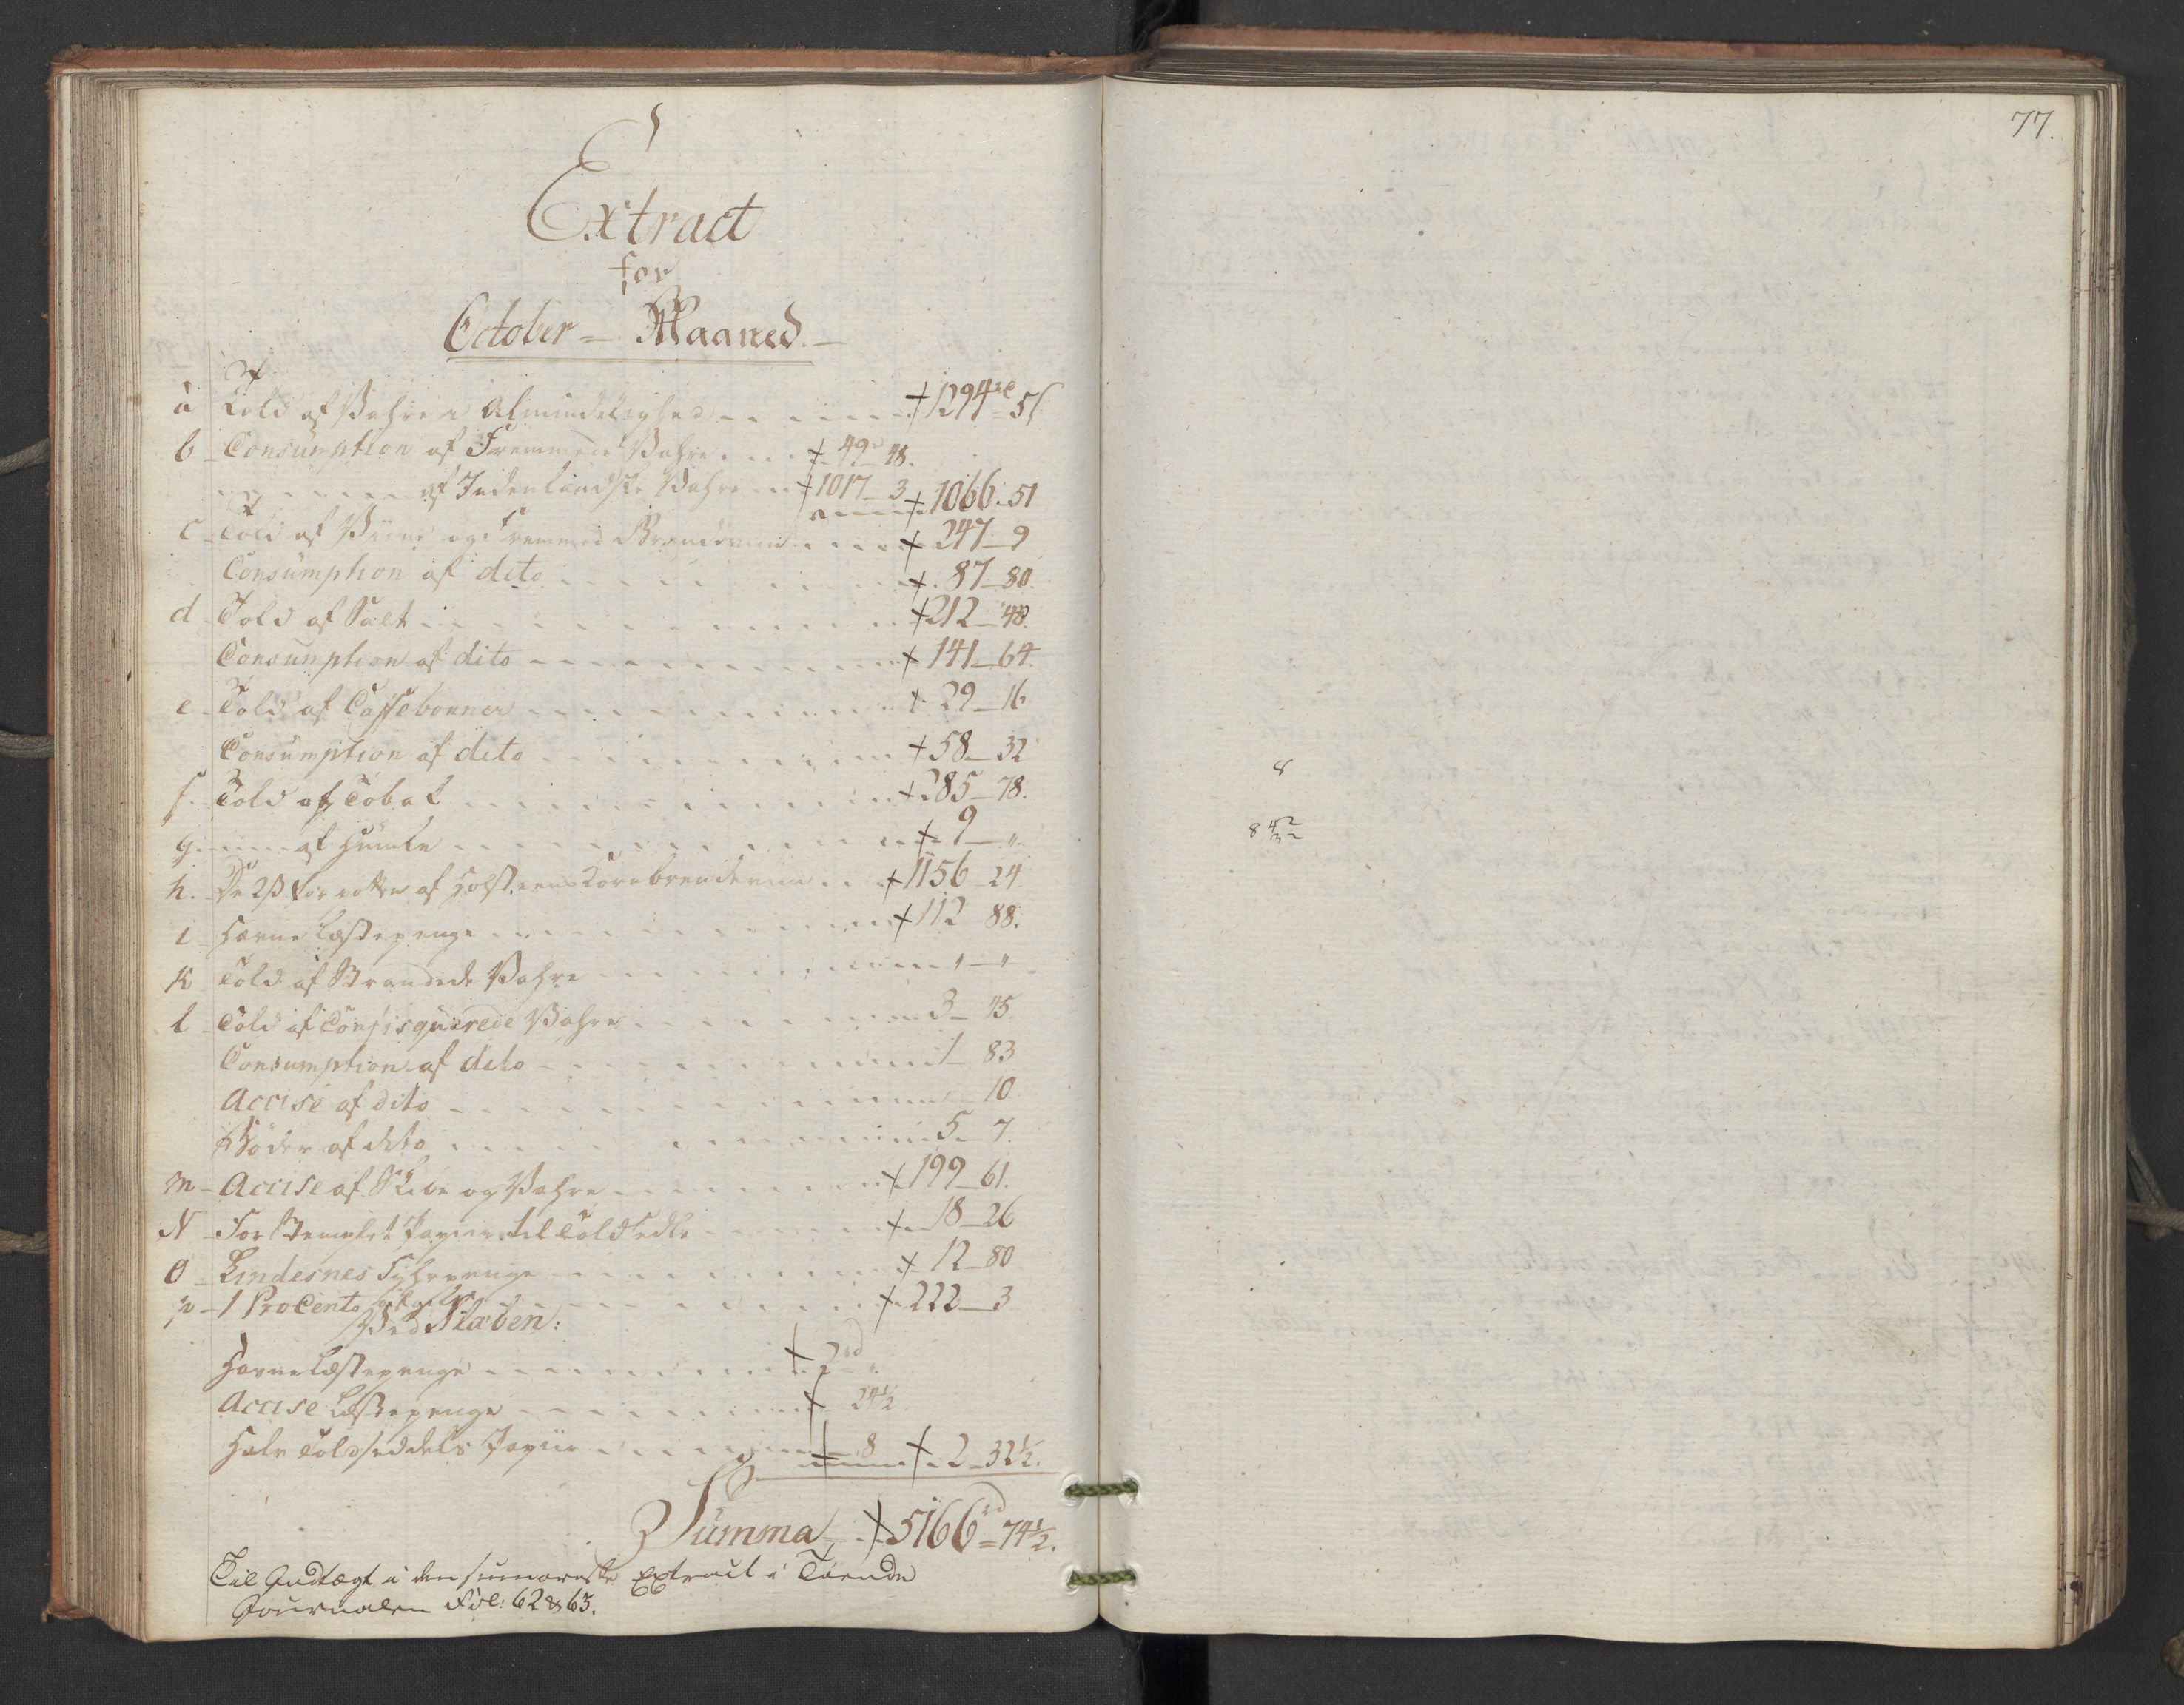 77.
Extract
for
October = Maaned.
a Told af Vahre i Almindelighed + 1294 rd 51
b Consumption af Fremmede Vahre + 49 48.
af Indenlandske Vahre + 1017 3 + 1066. 51
c Told af Viine og Fremmed Brændeviin + 247 9
Consumption af dito + 87 80.
d Told af Salt + 212 48.
Consumption af dito + 141 64.
e Told af Caffebønner + 29 16
Consumption af dito + 58 32
f. Told af Tobak + 285 78.
g. af Humle + 9 "
h. De 2 ß for potten af Holsteens Kornbrændeviin + 1156 24
i Havne Læstepenge + 112 88.
K Told af Strandede Vahre " "
l Told af Confisquerede Vahre 3 45.
Consumption af dito 1 83
Accise af dito 10
Bøder af dito 5 7.
m Accise af Skibe og Vahre + 199 61.
N For Stemplet Papiir til Toldsedle + 18 26
O Lindesnes Fyhrpenge + 12 80
p 1 ProCento + 222 3
Ved
Havne Læstepenge + 2 rd "
Accise Læstepenge + 24½
Halv Toldseddels Papiir + 8 + 2 32½.
Summa + 5166 rd = 74½.
Til Indtægt i den summariske Extract i
Journalen Fol: 62 & 63.
8
8